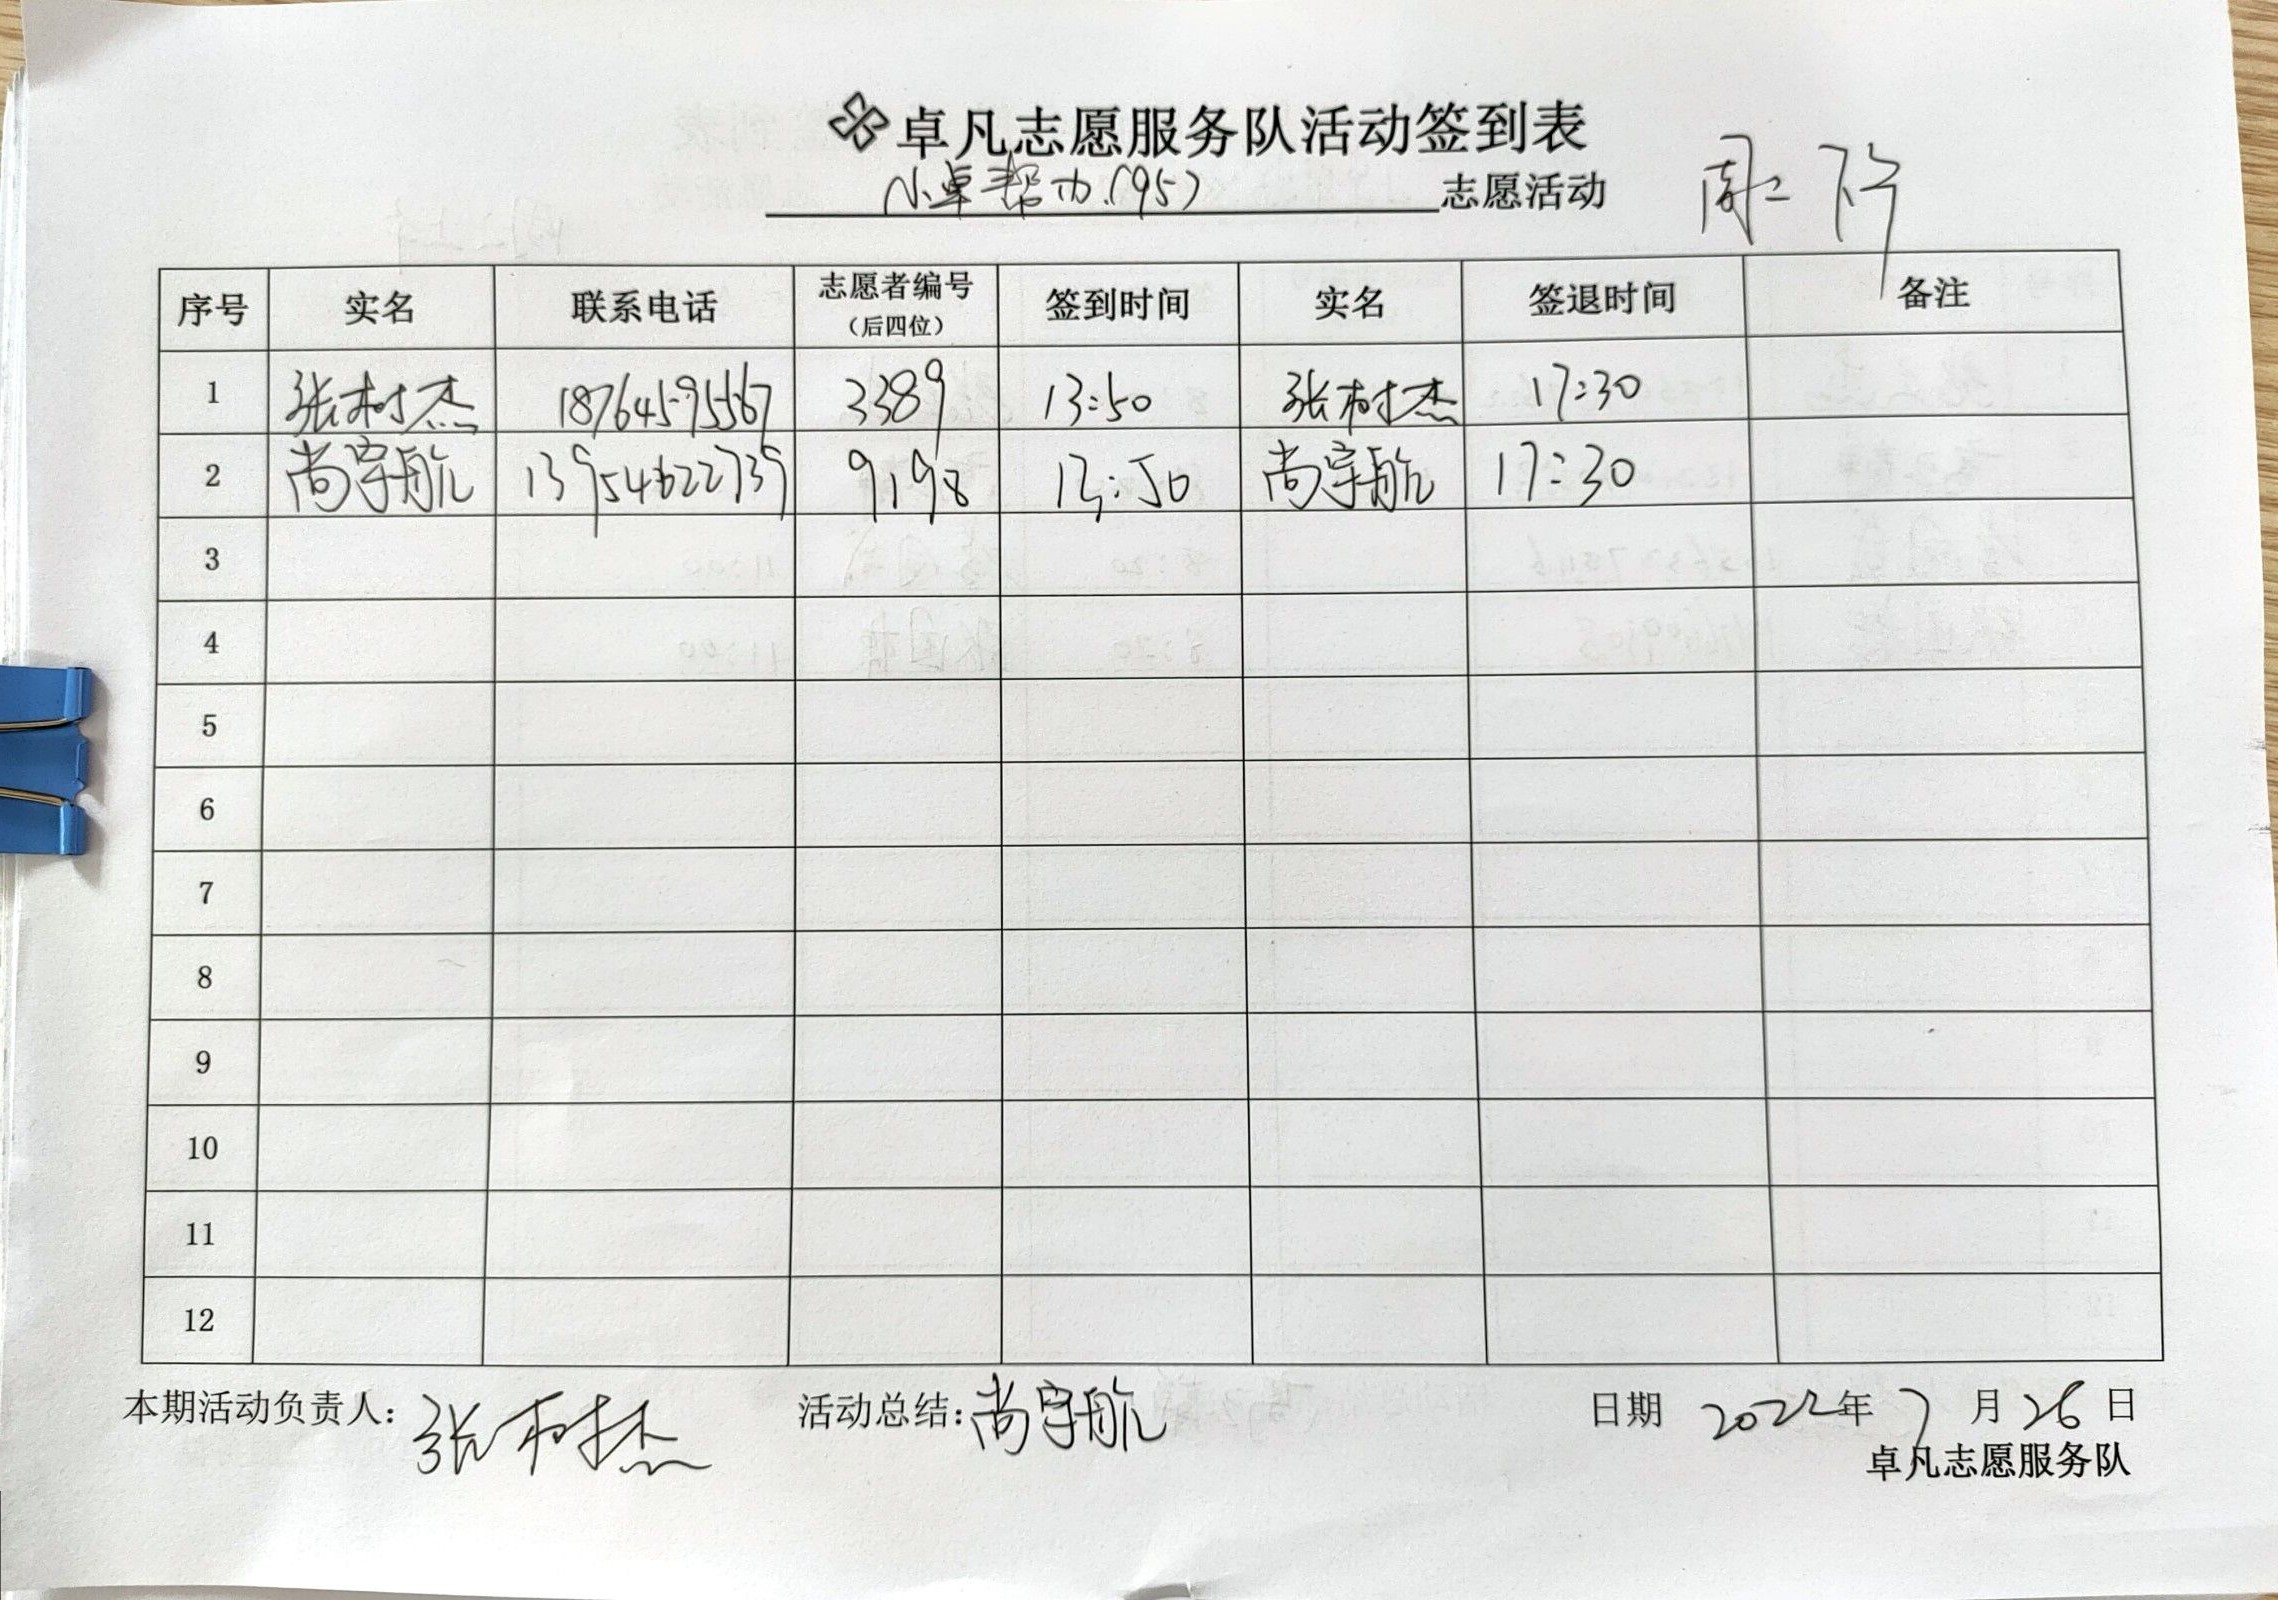 卓凡志愿服务队活动签到表
小卓帮办(95) 志愿活动 周二下午
序号 实名 联系电话 志愿者编号(后四位) 签到时间 实名 签退时间 备注
1 张树杰 18764595567 3389 13:50 张树杰 17:30
2 尚宇航 13954622739 9198 13:50 尚宇航 17:30
3
4
5
6
7
8
9
10
11
12
本期活动负责人: 张树杰 活动总结: 尚宇航 日期 2022年7月26日
卓凡志愿服务队